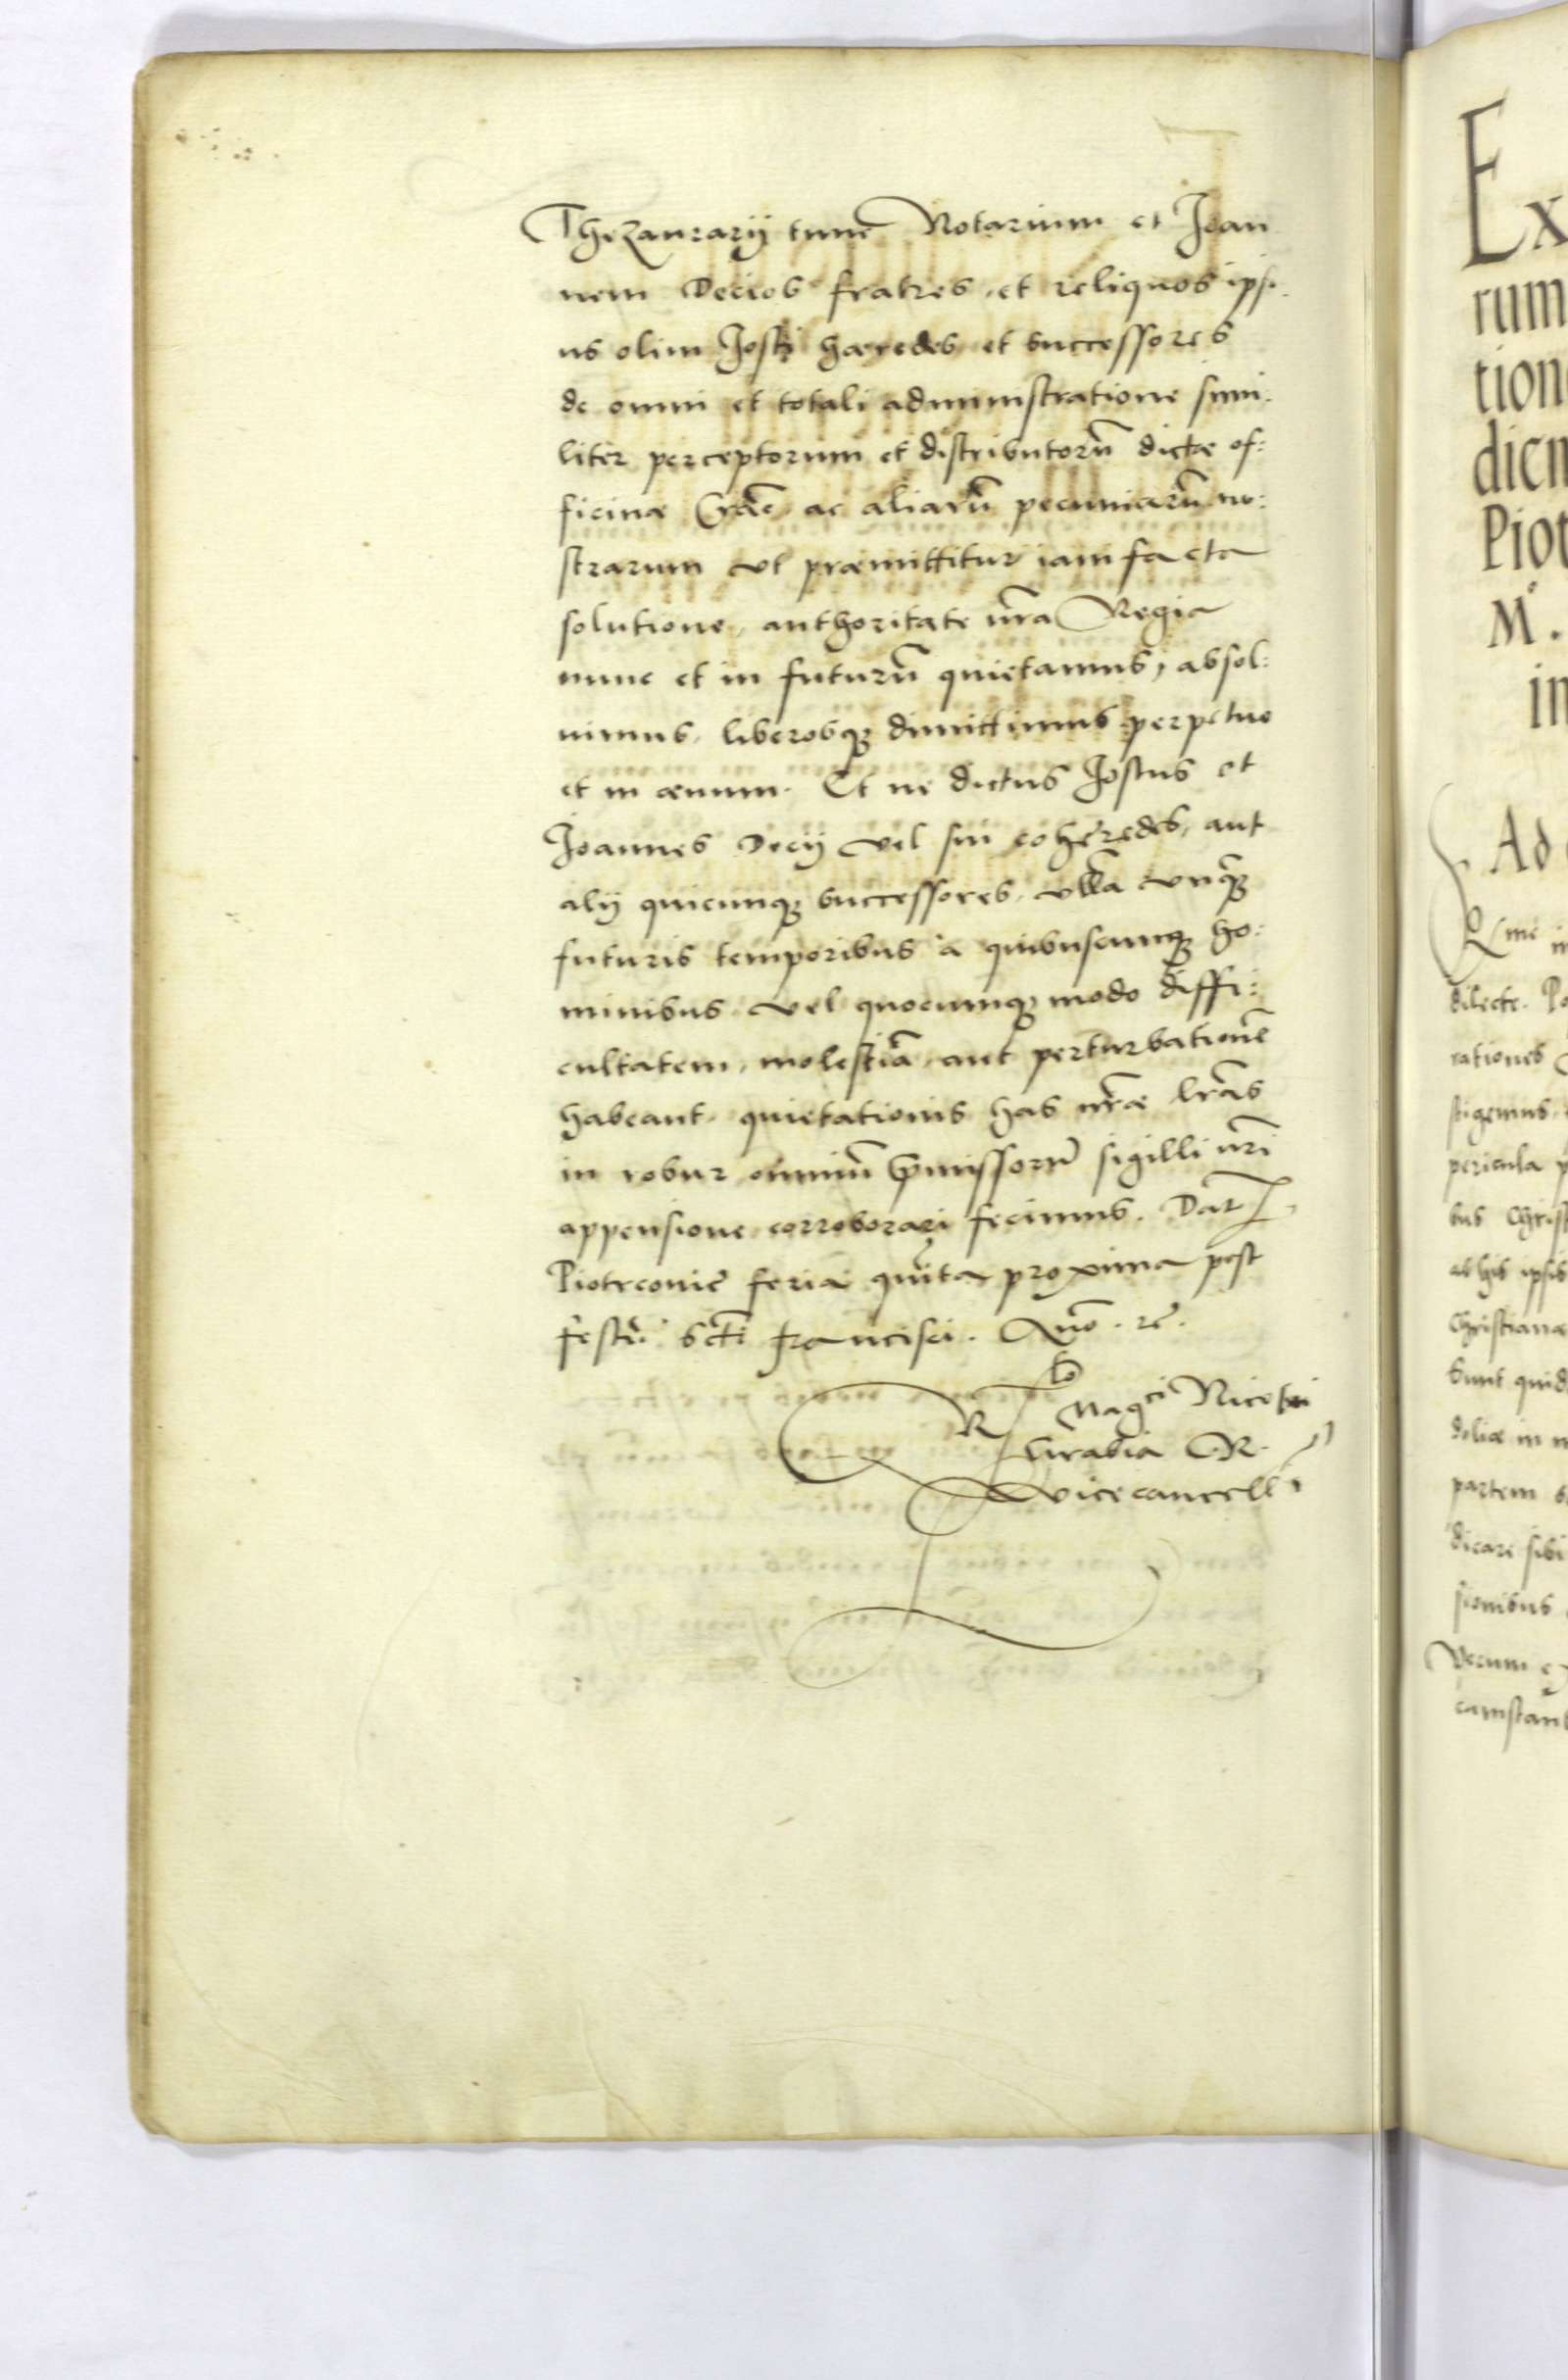 Thezaurarij tunc Notarium et Joan
nem Decios fratres, et reliquos ipsi.
us olim Josti hæredes et successores
de omni et totali administratione simi.
liter perceptorum et distributorū dictæ of:
ficinæ ac aliarū pecuniarū no:
strarum vt præmittitur iam facta
solutione, authoritate nr̄a Regia
nunc et in futurū quietamus, absol:
uimus, liberosq3 dimittimus perpetuo
et in æuum. Et ne dictus Jostus et
Joannes Decij vel sui coheredes, aut
alij quicunq3 successores, vlla vnq̄3
futuris temporibus a quibuscunq3 ho:
minibus vel quocunq3 modo diffi:
cultatem, molestiā, aut perturbationē
habeant, quietationis has nr̄æ lr̄as
in robur omniū p̄missorū sigilli nr̄i
appensione corroborari fecimus. Dat
Piotrconiæ feria quinta proxima post
festū scti Francisci. Año. rc̄.
Ex
rum
tion
dicn
Piot
M.
in
Ro Magci Nicolai
Grabia C.R.
Vicecancell
Ad
dilecte. Po
rationes
stigemus.
pericula p
bus Christ
ab his ipsis
Christianæ
Sunt quid
doliæ in n
partem
dicare sibi
sionibus
Verum
camstant